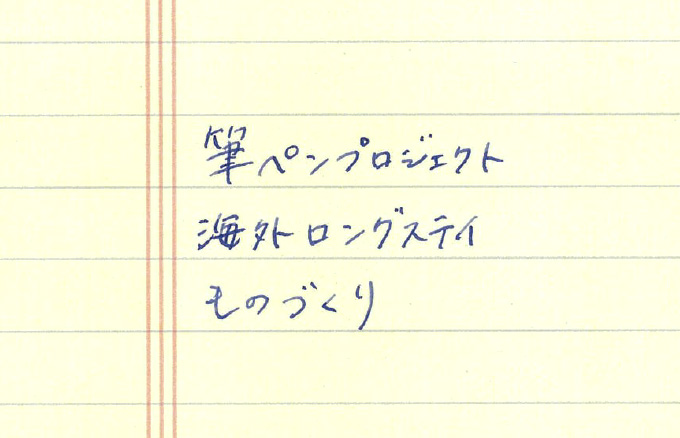 筆ペンプロジェクト
海外ロングステイ
ものづくり